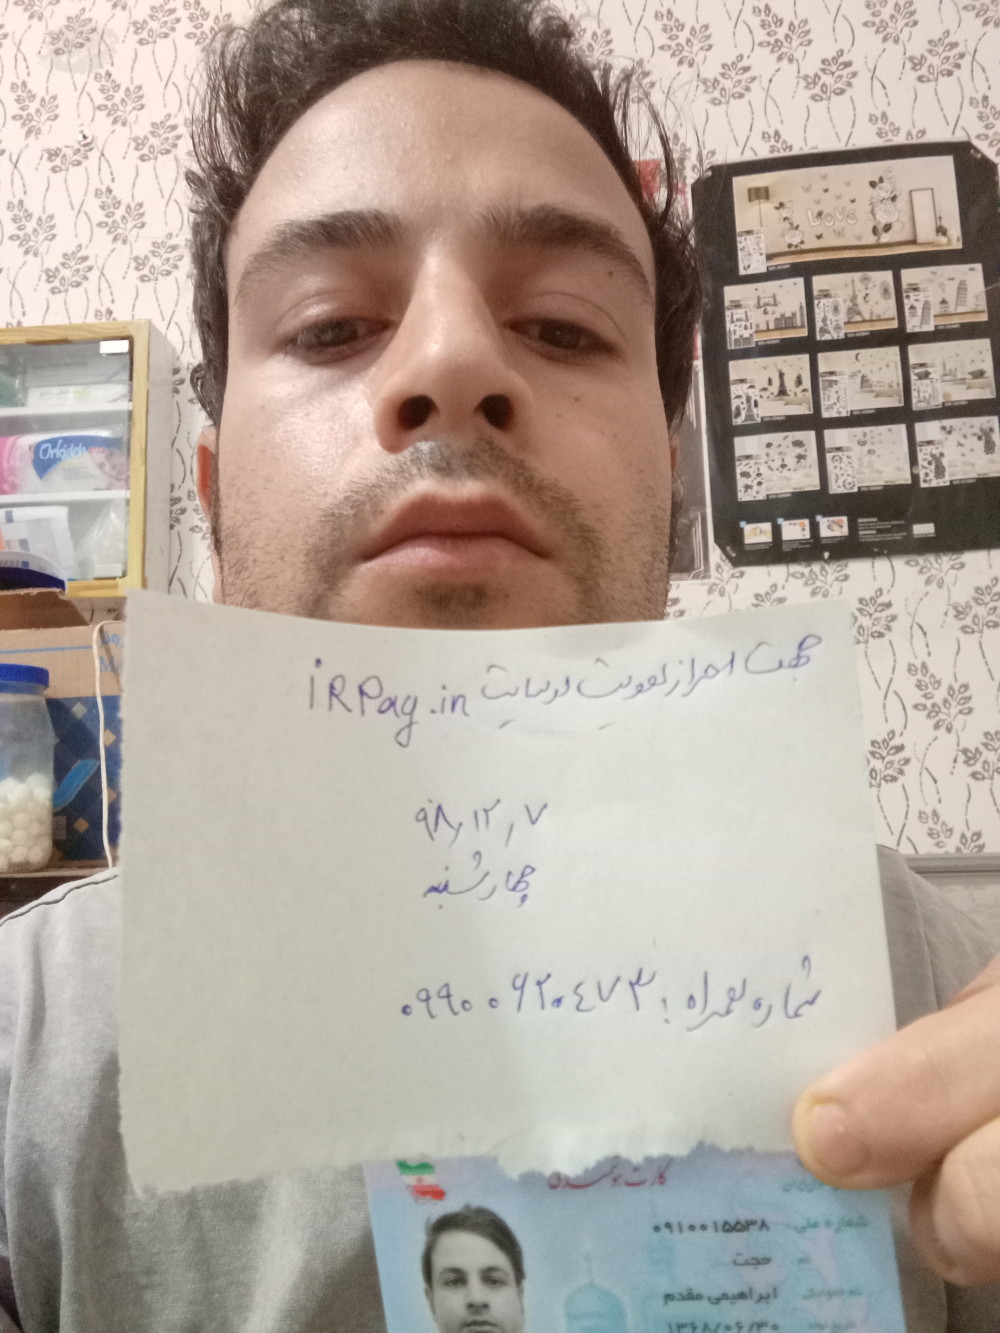 جهت احراز هویت در سایت iRPay.in
۹۸,۱۲,۷
چهارشنبه
شماره همراه: ۰۹۹۰۰۶۲۰۴۷۳
کارت هوشمند
شماره ملی ۰۹۱۰۰۱۵۵۳۸
نام حجت
نام خانوادگی ابراهیمی مقدم
تاریخ تولد ۱۳۶۸/۰۶/۳۰
Orkideh
LOVE